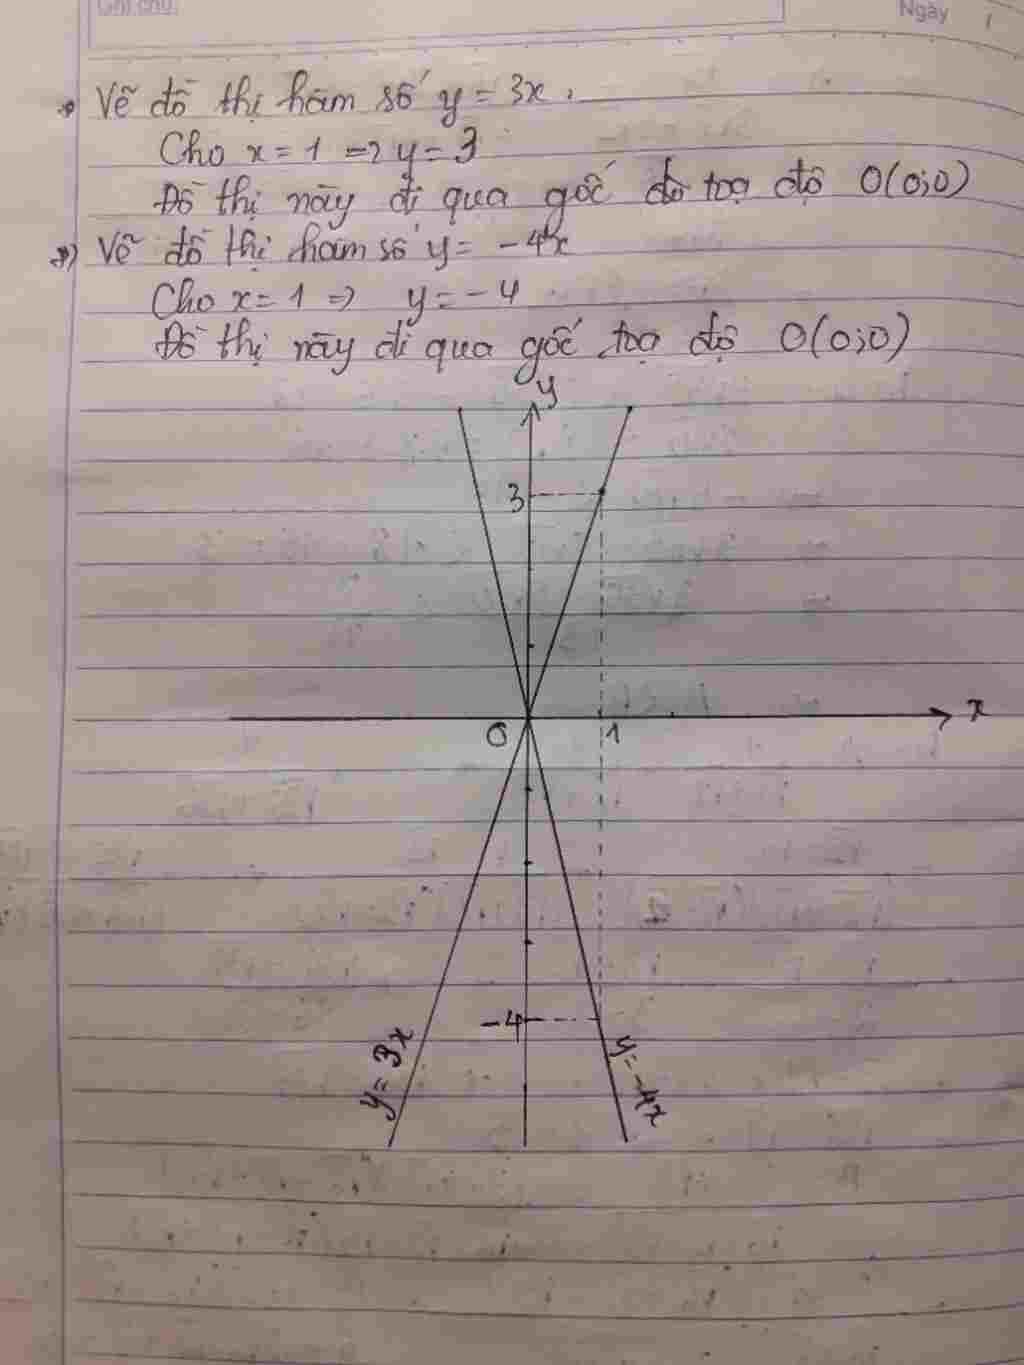 Ghi chú:
Ngày /
*) Vẽ đồ thị hàm số y = 3x.
Cho x = 1 => y = 3
Đồ thị này đi qua gốc độ toạ độ O(0;0)
*) Vẽ đồ thị hàm số y = -4x
Cho x = 1 => y = -4
Đồ thị này đi qua gốc toạ độ O(0;0)
y
3
0
1
x
-4
y = 3x
y = -4x